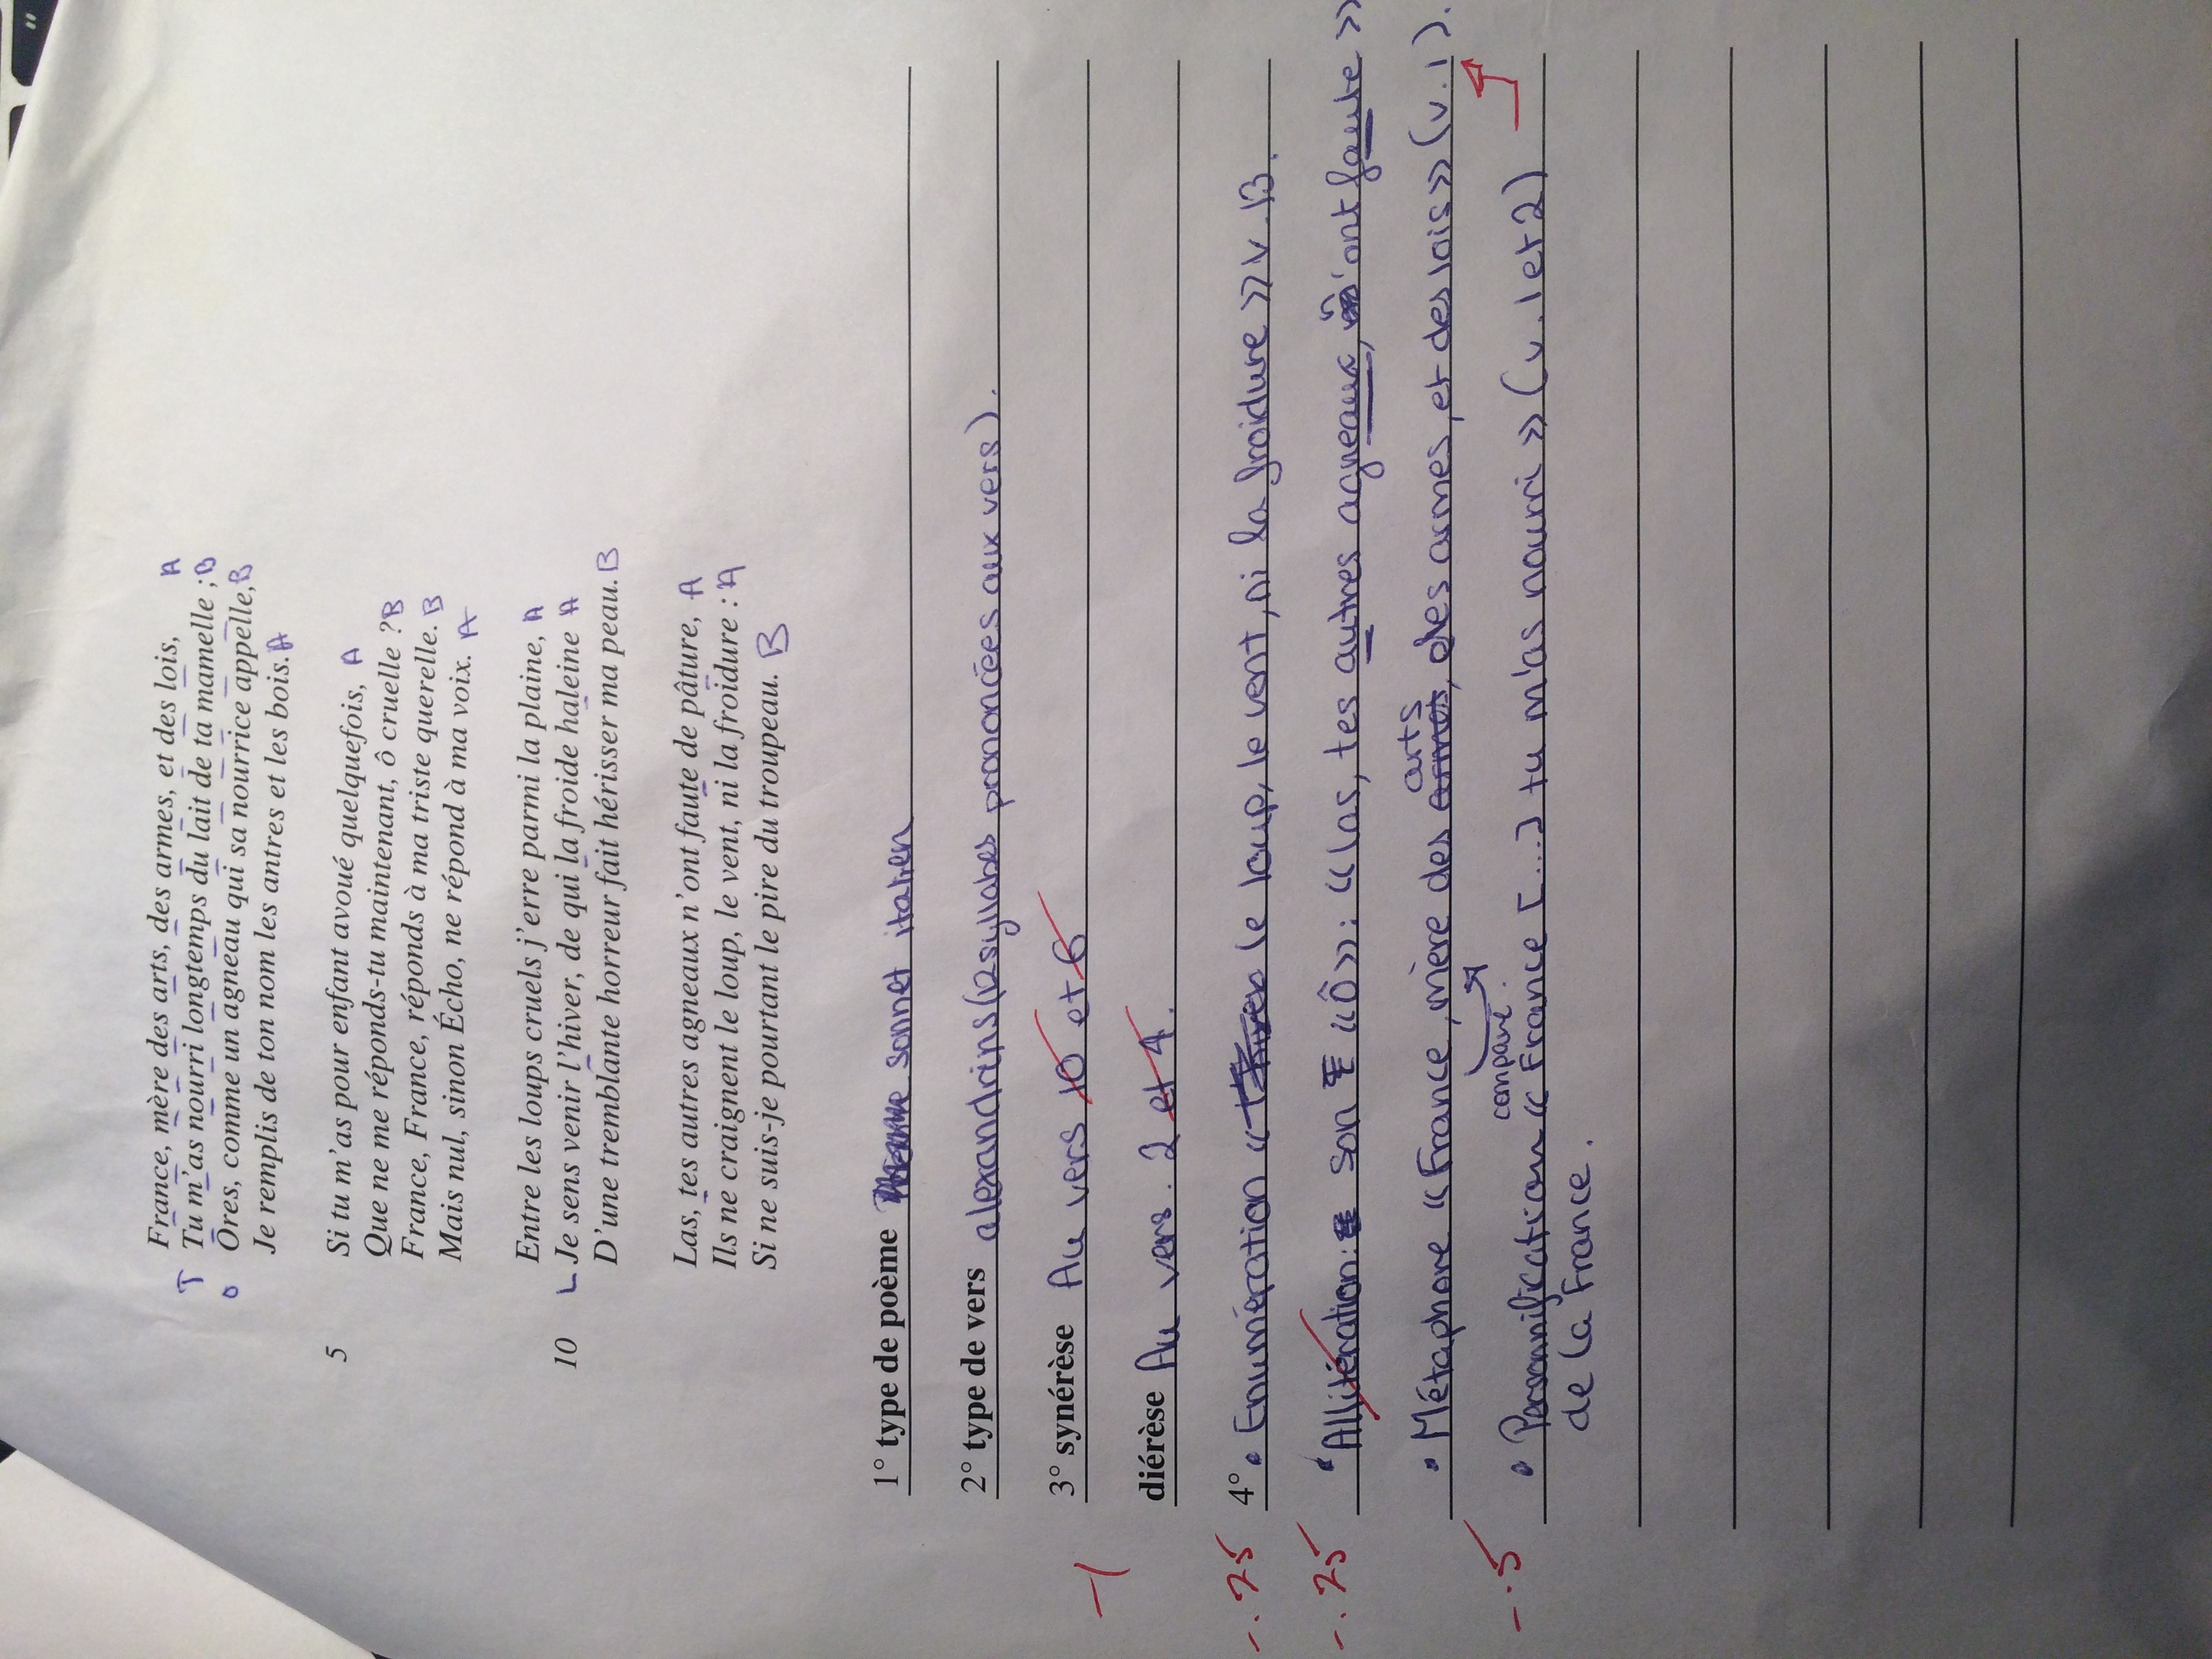 France, mère des arts, des armes, et des lois, A
T Tu m'as nourri longtemps du lait de ta mamelle ; B
O Ores, comme un agneau qui sa nourrice appelle, B
Je remplis de ton nom les antres et les bois. A
5 Si tu m'as pour enfant avoué quelquefois, A
Que ne me réponds-tu maintenant, ô cruelle ? B
France, France, réponds à ma triste querelle. B
Mais nul, sinon Écho, ne répond à ma voix. A
Entre les loups cruels j'erre parmi la plaine, A
10 L Je sens venir l'hiver, de qui la froide haleine A
D'une tremblante horreur fait hérisser ma peau. B
Las, tes autres agneaux n'ont faute de pâture, A
Ils ne craignent le loup, le vent, ni la froidure : A
Si ne suis-je pourtant le pire du troupeau. B
1° type de poème sonnet italien
2° type de vers alexandrins (12 syllabes prononcées aux vers).
3° synérèse Au vers 10 et 6
-1
diérèse Au vers. 2 et 4.
-.25 4° • Enumération « le loup, le vent, ni la froidure » v. 13.
-.25 • Allitération: son « Ô » : « las, tes autres agneaux, n'ont faute »
• Métaphore « France, mère des arts, des armes, et des lois » (v.1).
comparé.
-.5 • Personnification « France [...] tu m'as nourri » (v.1 et 2)
de la France.